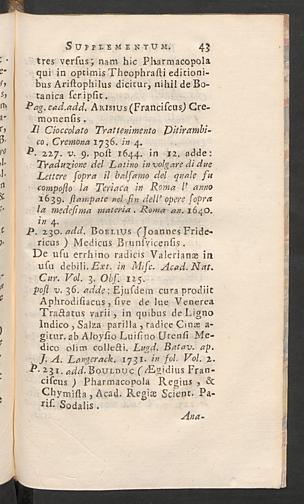 SUPPLEMENTUM. 43
tres versus; nam hic Pharmacopola
qui in optimis Theophrasti editioni-
bus Aristophilus dicitur, nihil de Bo-
tanica scripsit.
Pag. ead. add. ARISIUS (Franciscus) Cre-
monensis.
Il Cioccolato Trattenimento Ditirambi-
co, Cremona 1736. in 4.
P. 227. v. 9. post 1644. in 12. adde:
Traduzione del Latino in volgare di due
Lettere sopra il balsamo del quale fu
composto la Teriaca in Roma l' anno
1639. stampate nel fin dell' opere sopra
la medesima materia. Roma an. 1640.
in 4.
P. 230. add. BOELIUS (Joannes Fride-
ricus) Medicus Brunsvicensis.
De usu errhino radicis Valerianæ in
usu debili. Ext. in Misc. Acad. Nat.
Cur. Vol. 3. Obs. 125.
post v. 36. adde: Ejusdem cura prodiit
Aphrodisiacus, sive de lue Venerea
Tractatus varii, in quibus de Ligno
Indico, Salza parilla, radice Cinæ a-
gitur. ab Aloysio Luisino Utensi Me-
dico olim collecti. Lugd. Batav. ap.
J. A. Langerack. 1731. in fol. Vol. 2.
P. 231. add. BOULDUC (Ægidius Fran-
ciscus) Pharmacopola Regius, &
Chymista, Acad. Regiæ Scient. Pa-
ris. Sodalis.
Ana-